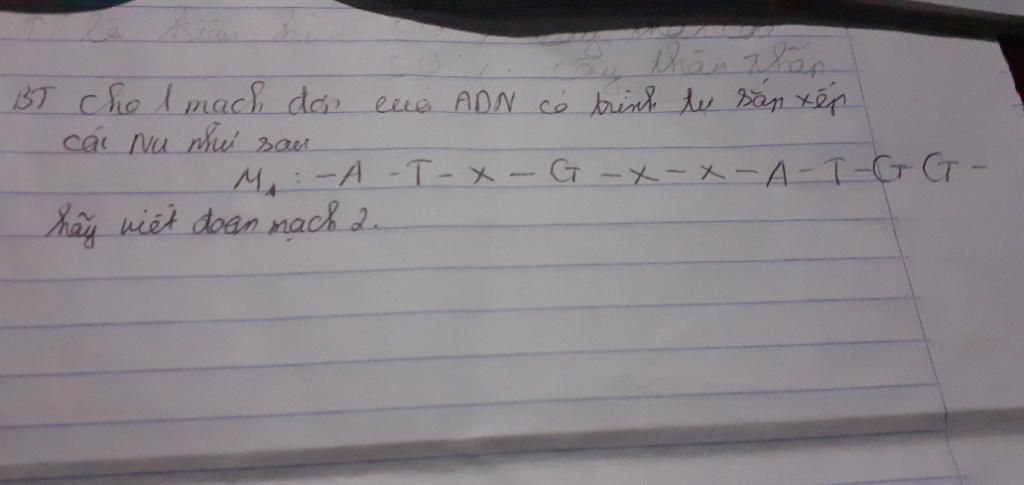 BT Cho 1 mạch đơn của ADN có trình tự sắp xếp
các Nu như sau
M1: - A - T - X - G - X - X - A - T - G G -
hãy viết đoạn mạch 2.